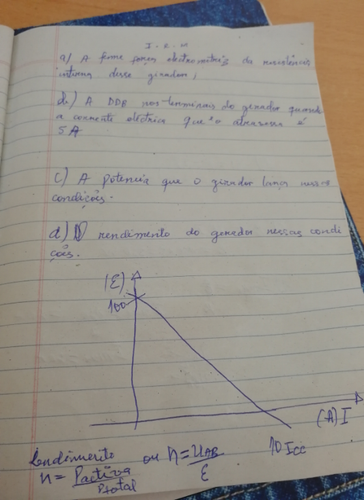 a) A força eletromotriz da resistência
interna desse girador;
b) A DDP nos terminais do gerador quando
a corrente elétrica que o atravessa é
5 A
c) A potencia que o girador lança nessas
condições.
d) O rendimento do gerador nessas condi
ções.
(E)
100
(A) I
10 Icc
Rendimento ou n = UAB / E
n = Pactiva / Ptotal